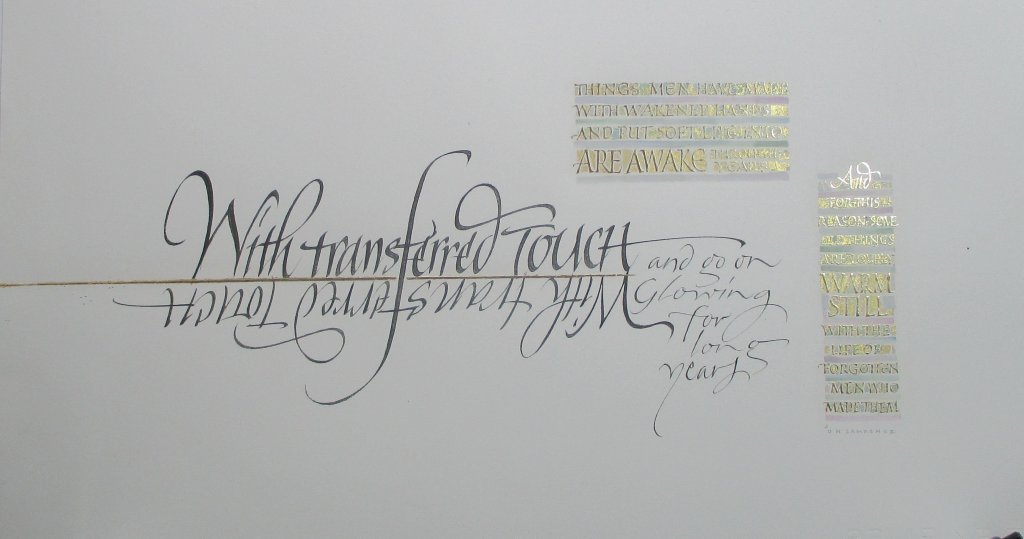 THINGS MEN HAVE MADE
WITH WAKENED HANDS
AND PUT SOFT LIFE INTO
ARE AWAKE THROUGH
YEARS
With transferred Touch
With transferred Touch
and go on
Glowing
for
long
years
And
FOR THIS
REASON SOME
OLD THINGS
ARE LOVELY
WARM
STILL
WITH THE
LIFE OF
FORGOTTEN
MEN WHO
MADE THEM
D H LAWRENCE